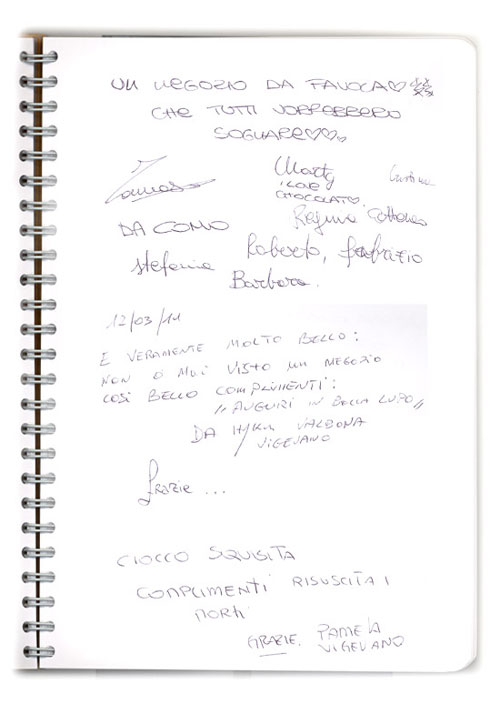 UN NEGOZIO DA FAVOLA♡
CHE TUTTI VORREBBERO
SOGNARE♡♡♡
Marty
I LOVE
CHOCOLAT♡.
DA COMO
Regina
Stefania
Roberto, fabrizio
Barbara.
12/03/11
E VERAMENTE MOLTO BELLO:
NON O MAI VISTO UN NEGOZIO
COSÌ BELLO COMPLIMENTI:
,, AUGURI IN BOCCA LUPO,,
DA VALBONA
VIGEVANO
Grazie ...
CIOCCO SQUISITA
COMPLIMENTI RISUSCITA I
MORTI
GRAZIE. PAMELA
VIGEVANO